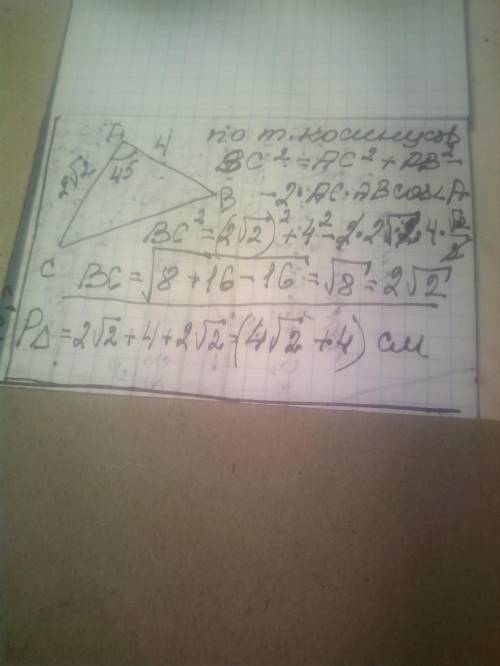 A
4
2√2
45
B
C
по т. косинусов
BC² = AC² + AB² -
- 2·AC·AB cos∠A
BC² = (2√2)² + 4² - 2·2√2·4·√2/2
BC = √8 + 16 - 16 = √8 = 2√2
P△ = 2√2 + 4 + 2√2 = (4√2 + 4) см